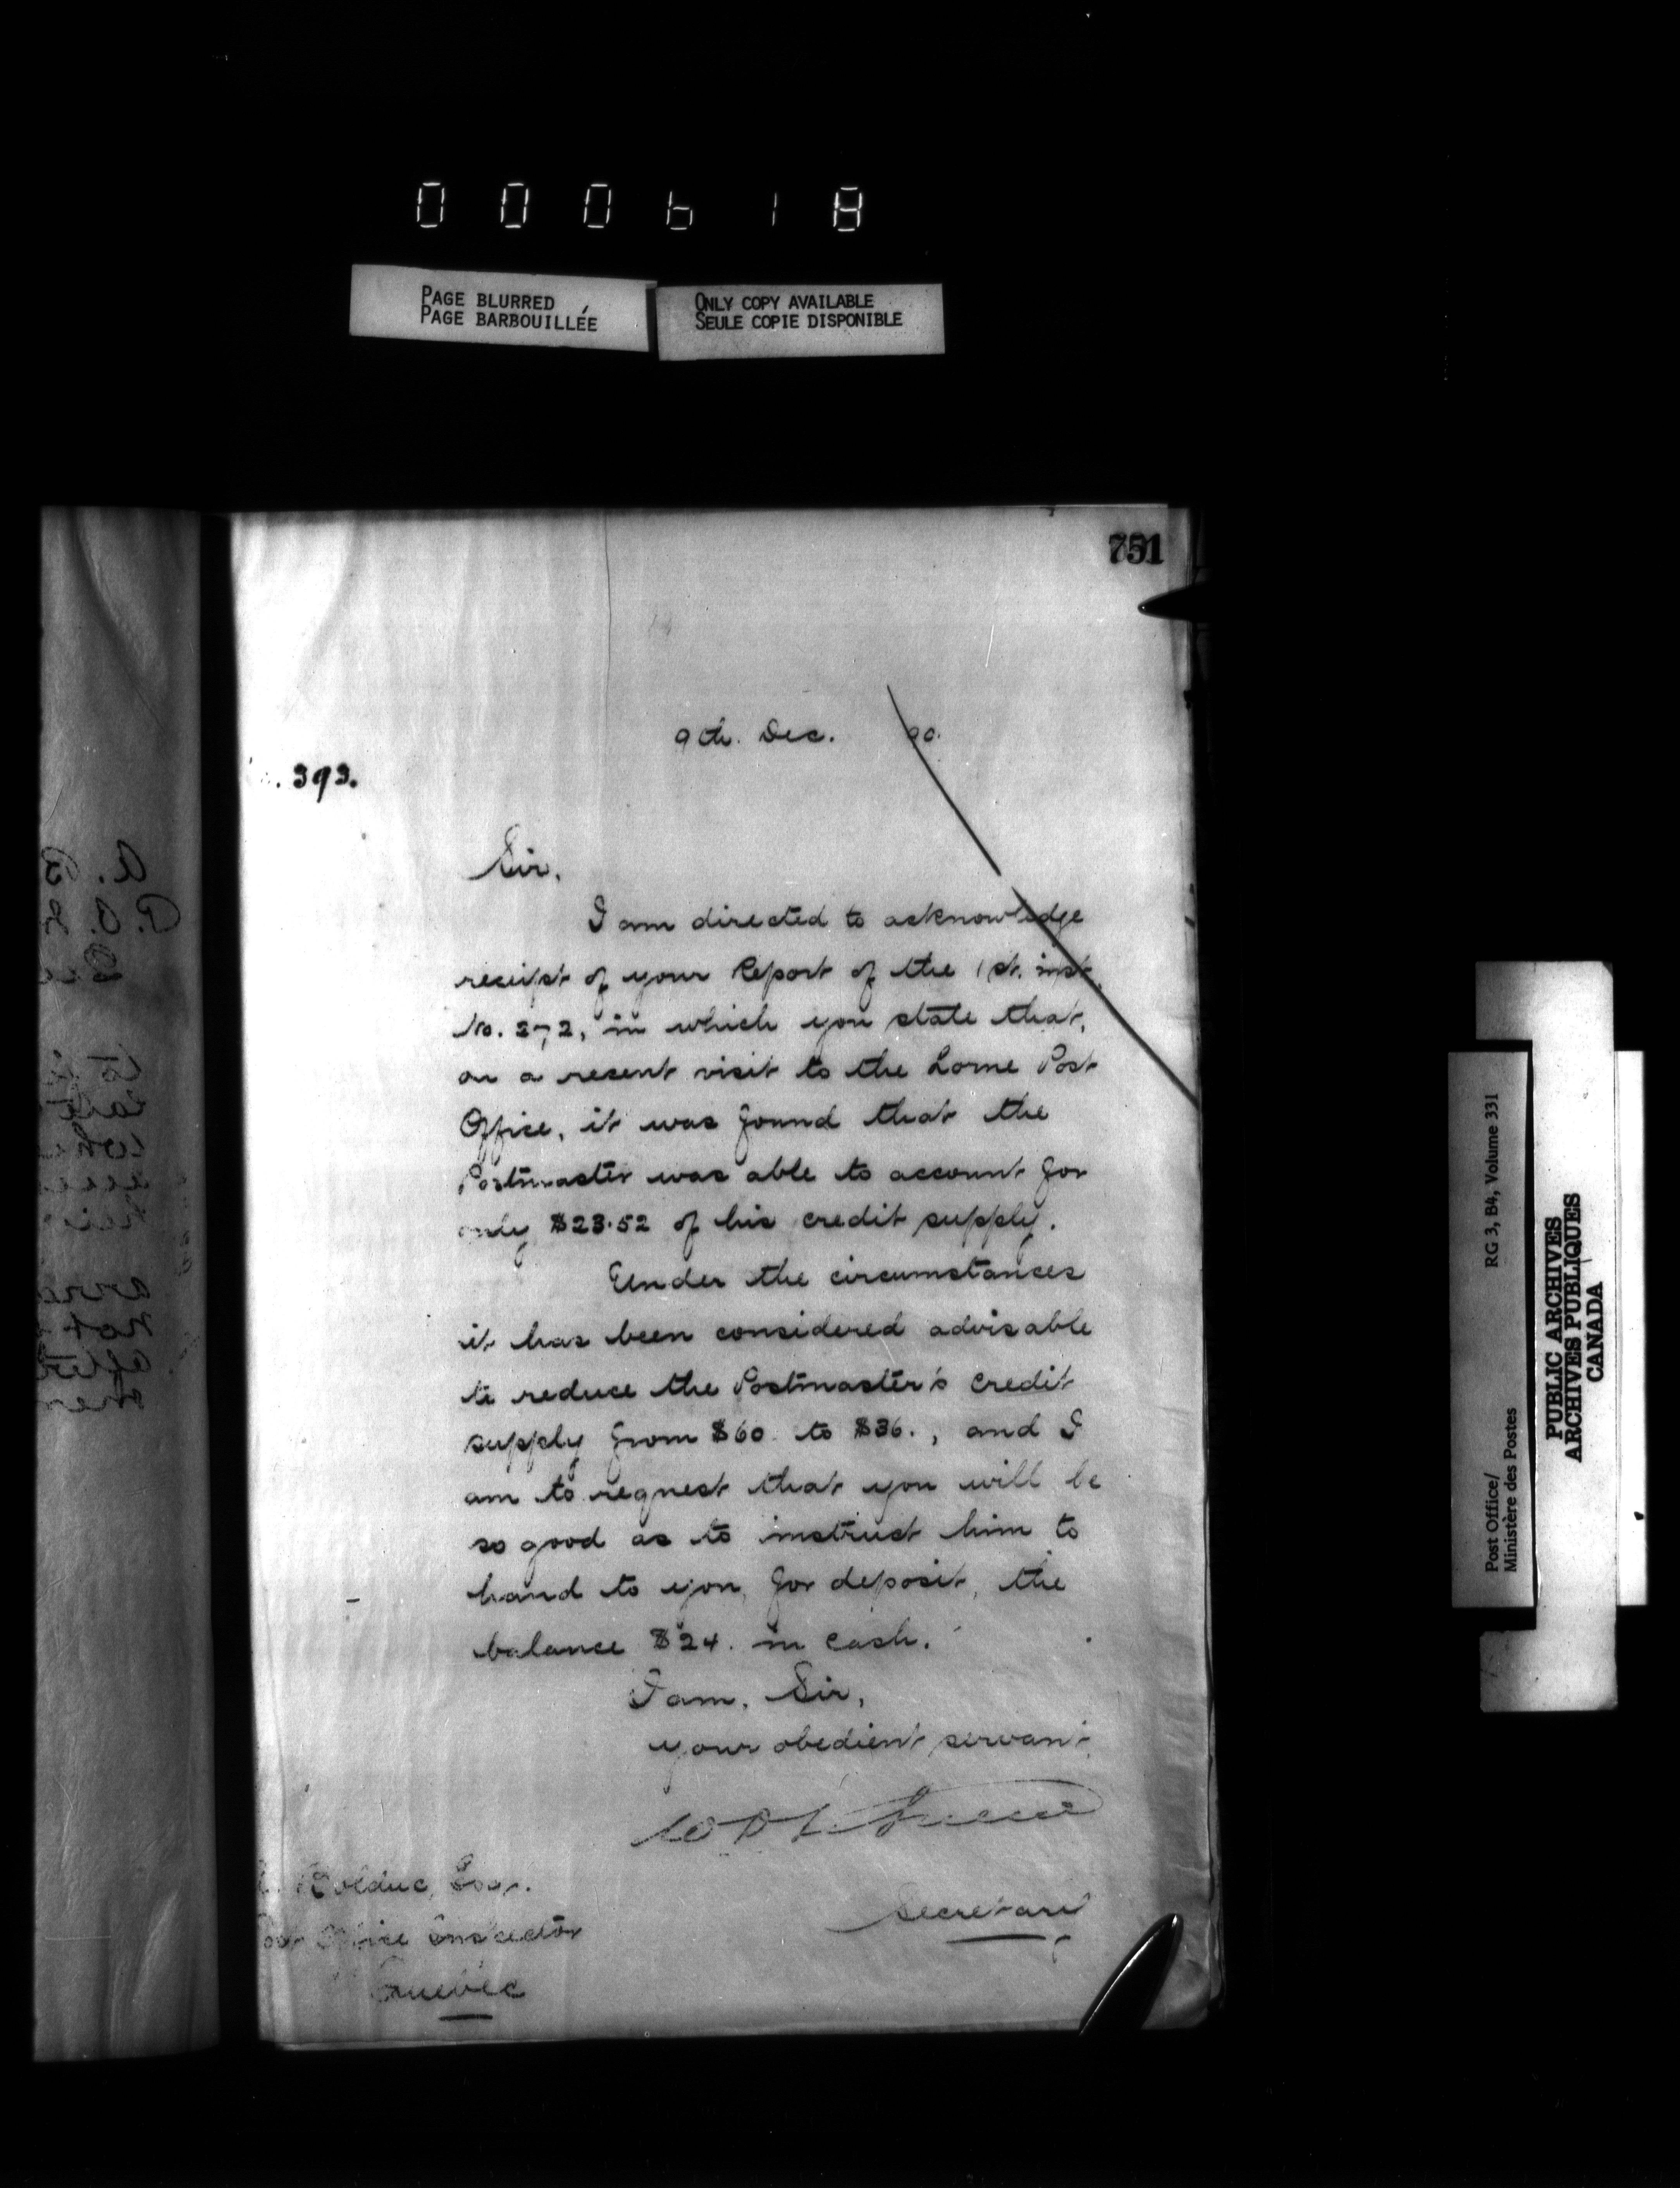 000618
PAGE BLURRED
PAGE BARBOUILLÉE
ONLY COPY AVAILABLE
SEULE COPIE DISPONIBLE
751
9th. Dec. 90.
393.
Sir,
I am directed to acknowledge
receipt of your Report of the 1st. inst.
No. 272, in which you state that,
on a recent visit to the Lorne Post
Office, it was found that the
Postmaster was able to account for
only $23.52 of his credit supply.
Under the circumstances
it has been considered advisable
to reduce the Postmaster's credit
supply from $60. to $36., and I
am to request that you will be
so good as to instruct him to
hand to you, for deposit, the
balance $24. in cash.
I am, Sir,
your obedient servant,
Secretary
Bolduc, Esqr.
Post Office Inspector
Quebec
RG 3, B4, Volume 331
Post Office/
Ministère des Postes
PUBLIC ARCHIVES
ARCHIVES PUBLIQUES
CANADA